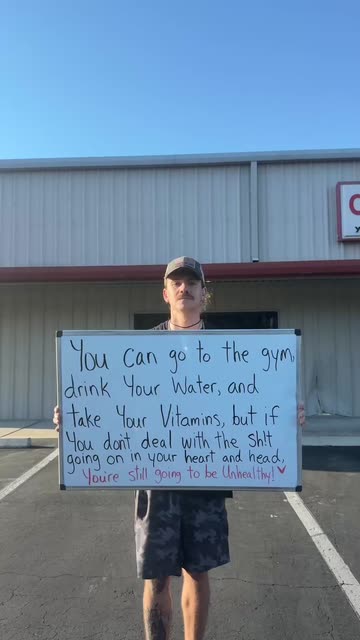 You can go to the gym,
drink Your Water, and
take Your Vitamins, but if
You don't deal with the sh!t
going on in your heart and head,
You're still going to be Unhealthy!